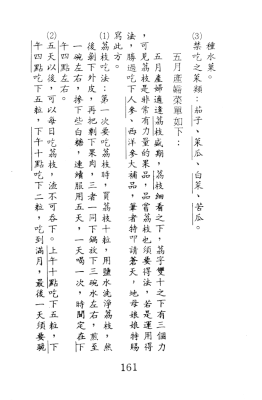 種水果。
(3)禁吃之菜類：茄子、菜瓜、白菜、苦瓜。
五月產婦菜單如下：
五月產婦適逢荔枝盛期，荔枝細看之下，荔字雙十之下有三個力
，可見荔枝是非常有力量的果品，品嘗荔枝也須要得法，若是運用得
法，勝過吃下人參、西洋參大補品，筆者特叩請蒼天，地母娘娘特賜
寫此方。
(1)荔枝吃法：第一次要吃荔枝時，買荔枝十粒，用鹽水洗淨荔枝，然
後剝下外皮，再把剩下果肉，三者一同下鍋放下三碗水左右，煎至
一碗左右，摻下些白糖，連續服用五天，一天喝一次，時間定在下
午四點左右。
(2)五天以後，可以每日吃荔枝，渣不可吞下。上午十點吃下五粒，下
午四點吃下五粒，下午十點吃下二粒，吃到滿月，最後一天須要碗
161